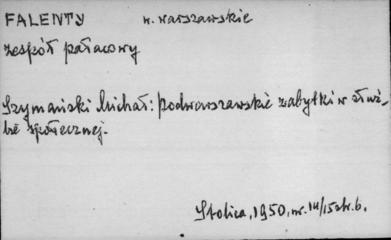 FALENTY w. warszawskie
zespół pałacowy
Szymański Michał: Podwarszawskie zabytki w służ-
bie społecznej.
Stolica, 1950, nr. 14/15 str. 6.